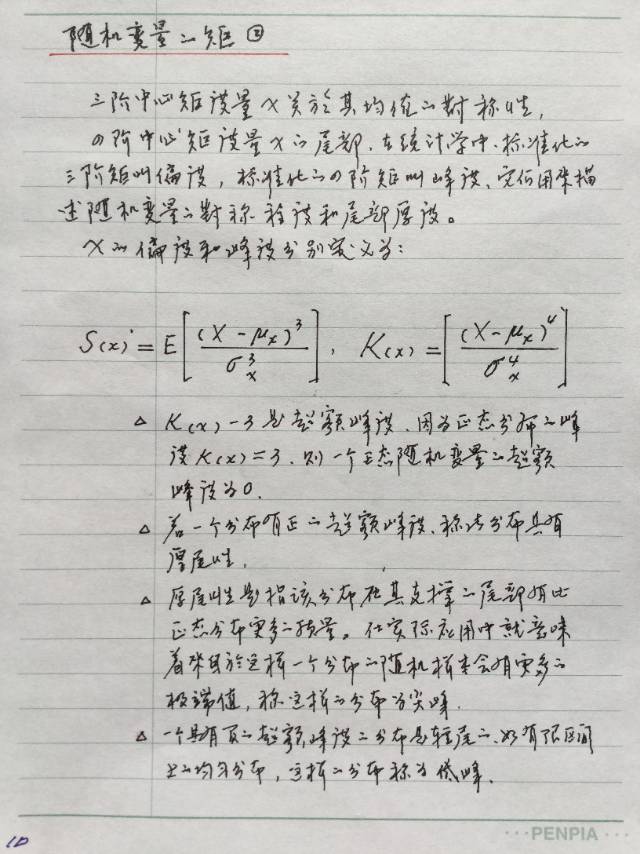 随机变量的矩②
三阶中心矩度量X关於其均值的對称性,
四阶中心矩度量X的尾部.在统计学中.标准化的
三阶矩叫偏度,标准化的四阶矩叫峰度、它们用来描
述随机变量的對称程度和尾部厚度。
X的偏度和峰度分别定义为:
S(x) = E[(X-μx)³/σ³x], K(x) = [(X-μx)⁴/σ⁴x]
△ K(x)-3是超额峰度.因为正态分布的峰
度K(x)=3.则一个正态随机变量的超额
峰度为0.
△ 若一个分布有正的超额峰度、称此分布具有
厚尾性.
△ 厚尾性是指该分布在其支撑的尾部有比
正态分布更多的质量。在实际应用中就意味
着来自於这样一个分布的随机样本会有更多的
极端值,称这样的分布为尖峰.
△ 一个具有负的超额峰度的分布是轻尾的、如有限区间
上的均匀分布,这样的分布称为低峰.
10
···PENPIA···